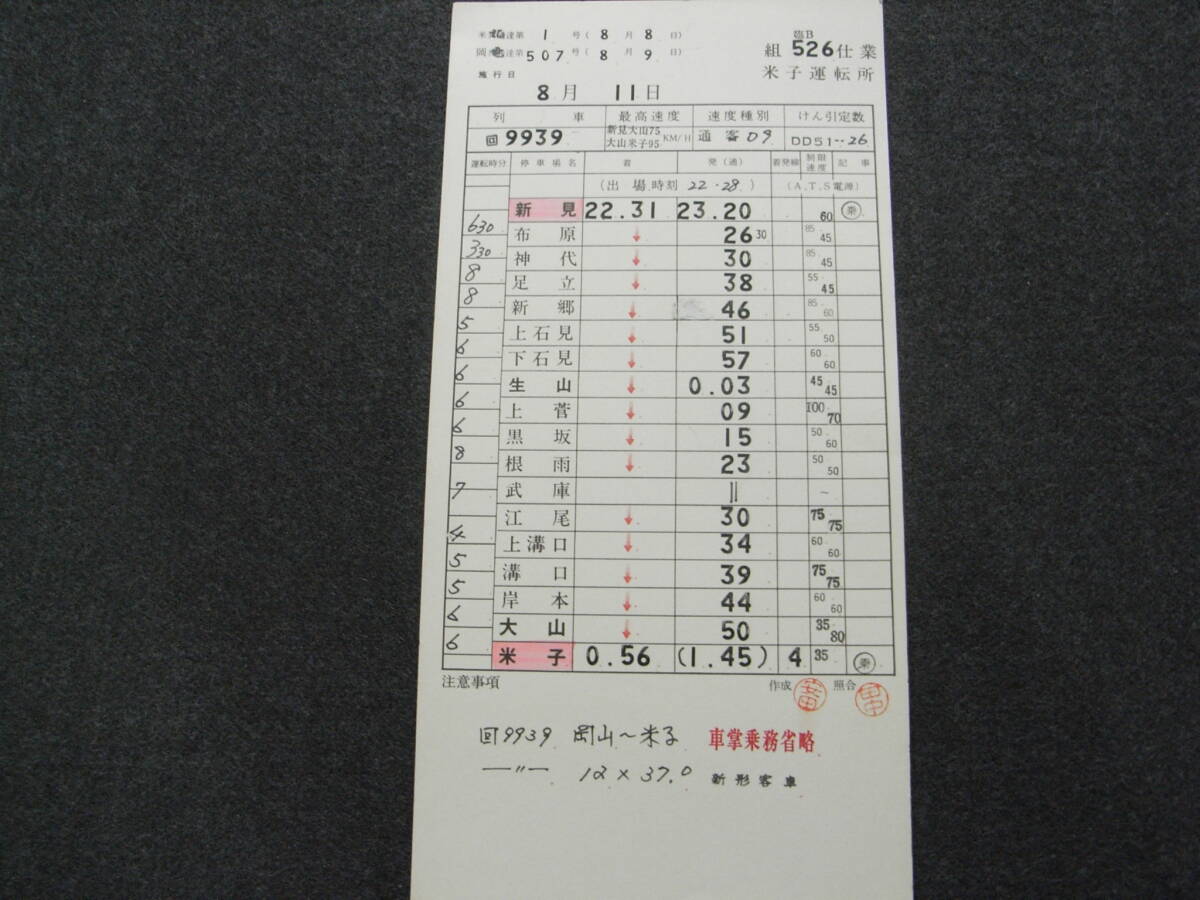 達第 1 号(8月8日)
達第507号(8月9日)
施行日
8月 11日
臨B
組 526仕業
米子運転所
列車 最高速度 速度種別 けん引定数
回9939 新見大山75 大山米子95 KM/H 通客 D9 DD51--26
運転時分 停車場名 着 発(通) 着発線 制限速度 記事
(出場時刻 22.28) (A.T.S電源)
新見 22.31 23.20 60 乗
630 布原 ↓ 26 30 85 45
330 神代 ↓ 30 85 45
8 足立 ↓ 38 55 45
8 新郷 ↓ 46 85 60
5 上石見 ↓ 51 55 50
6 下石見 ↓ 57 60 60
6 生山 ↓ 0.03 45 45
6 上菅 ↓ 09 100 70
6 黒坂 ↓ 15 50 60
8 根雨 ↓ 23 50 50
武庫 || ~
7 江尾 ↓ 30 75 75
4 上溝口 ↓ 34 60 60
5 溝口 ↓ 39 75 75
5 岸本 ↓ 44 60 60
6 大山 ↓ 50 35 80
6 米子 0.56 (1.45) 4 35 乗
注意事項 作成 照合 田中
回9939 岡山~米子 車掌乗務省略
—〃— 12×37.0 新形客車